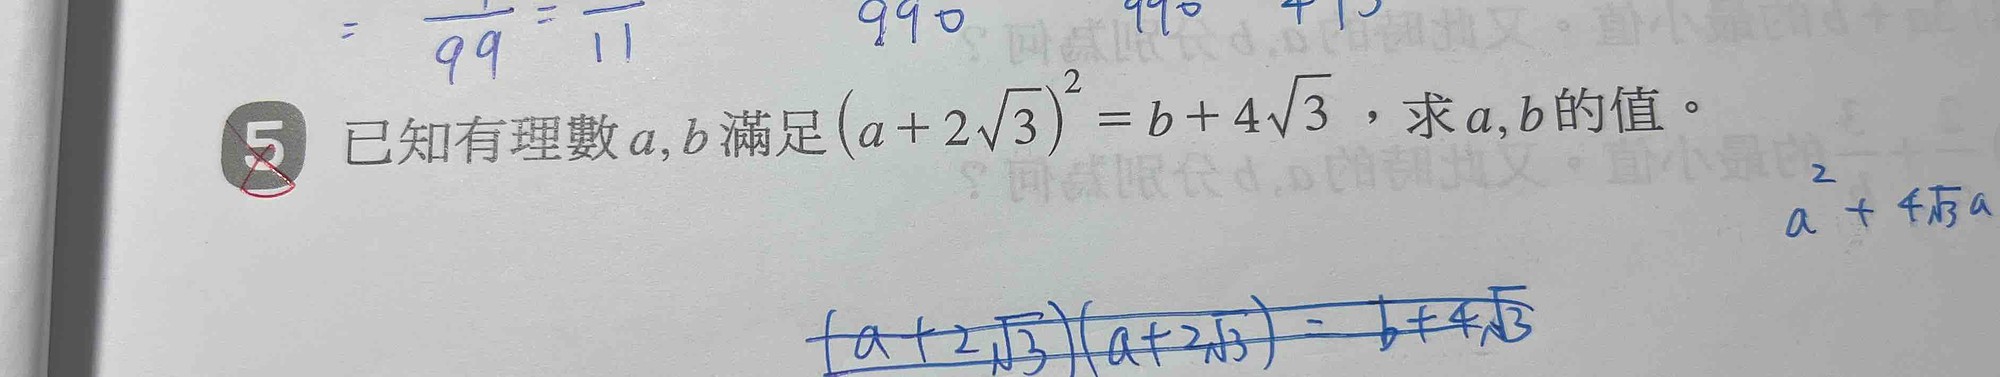 = 99 = 11 990 990
5 已知有理數 a, b 滿足 (a + 2√3)² = b + 4√3 ，求 a, b 的值。
a² + 4√3 a
(a + 2√3)(a + 2√3) = b + 4√3